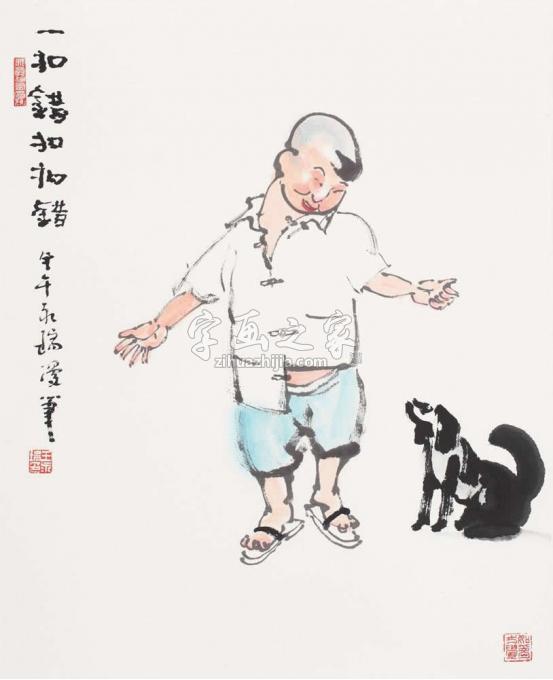 一扣錯扣扣錯
壬午永瑞漫筆
字画之家
zihuazhijia.com